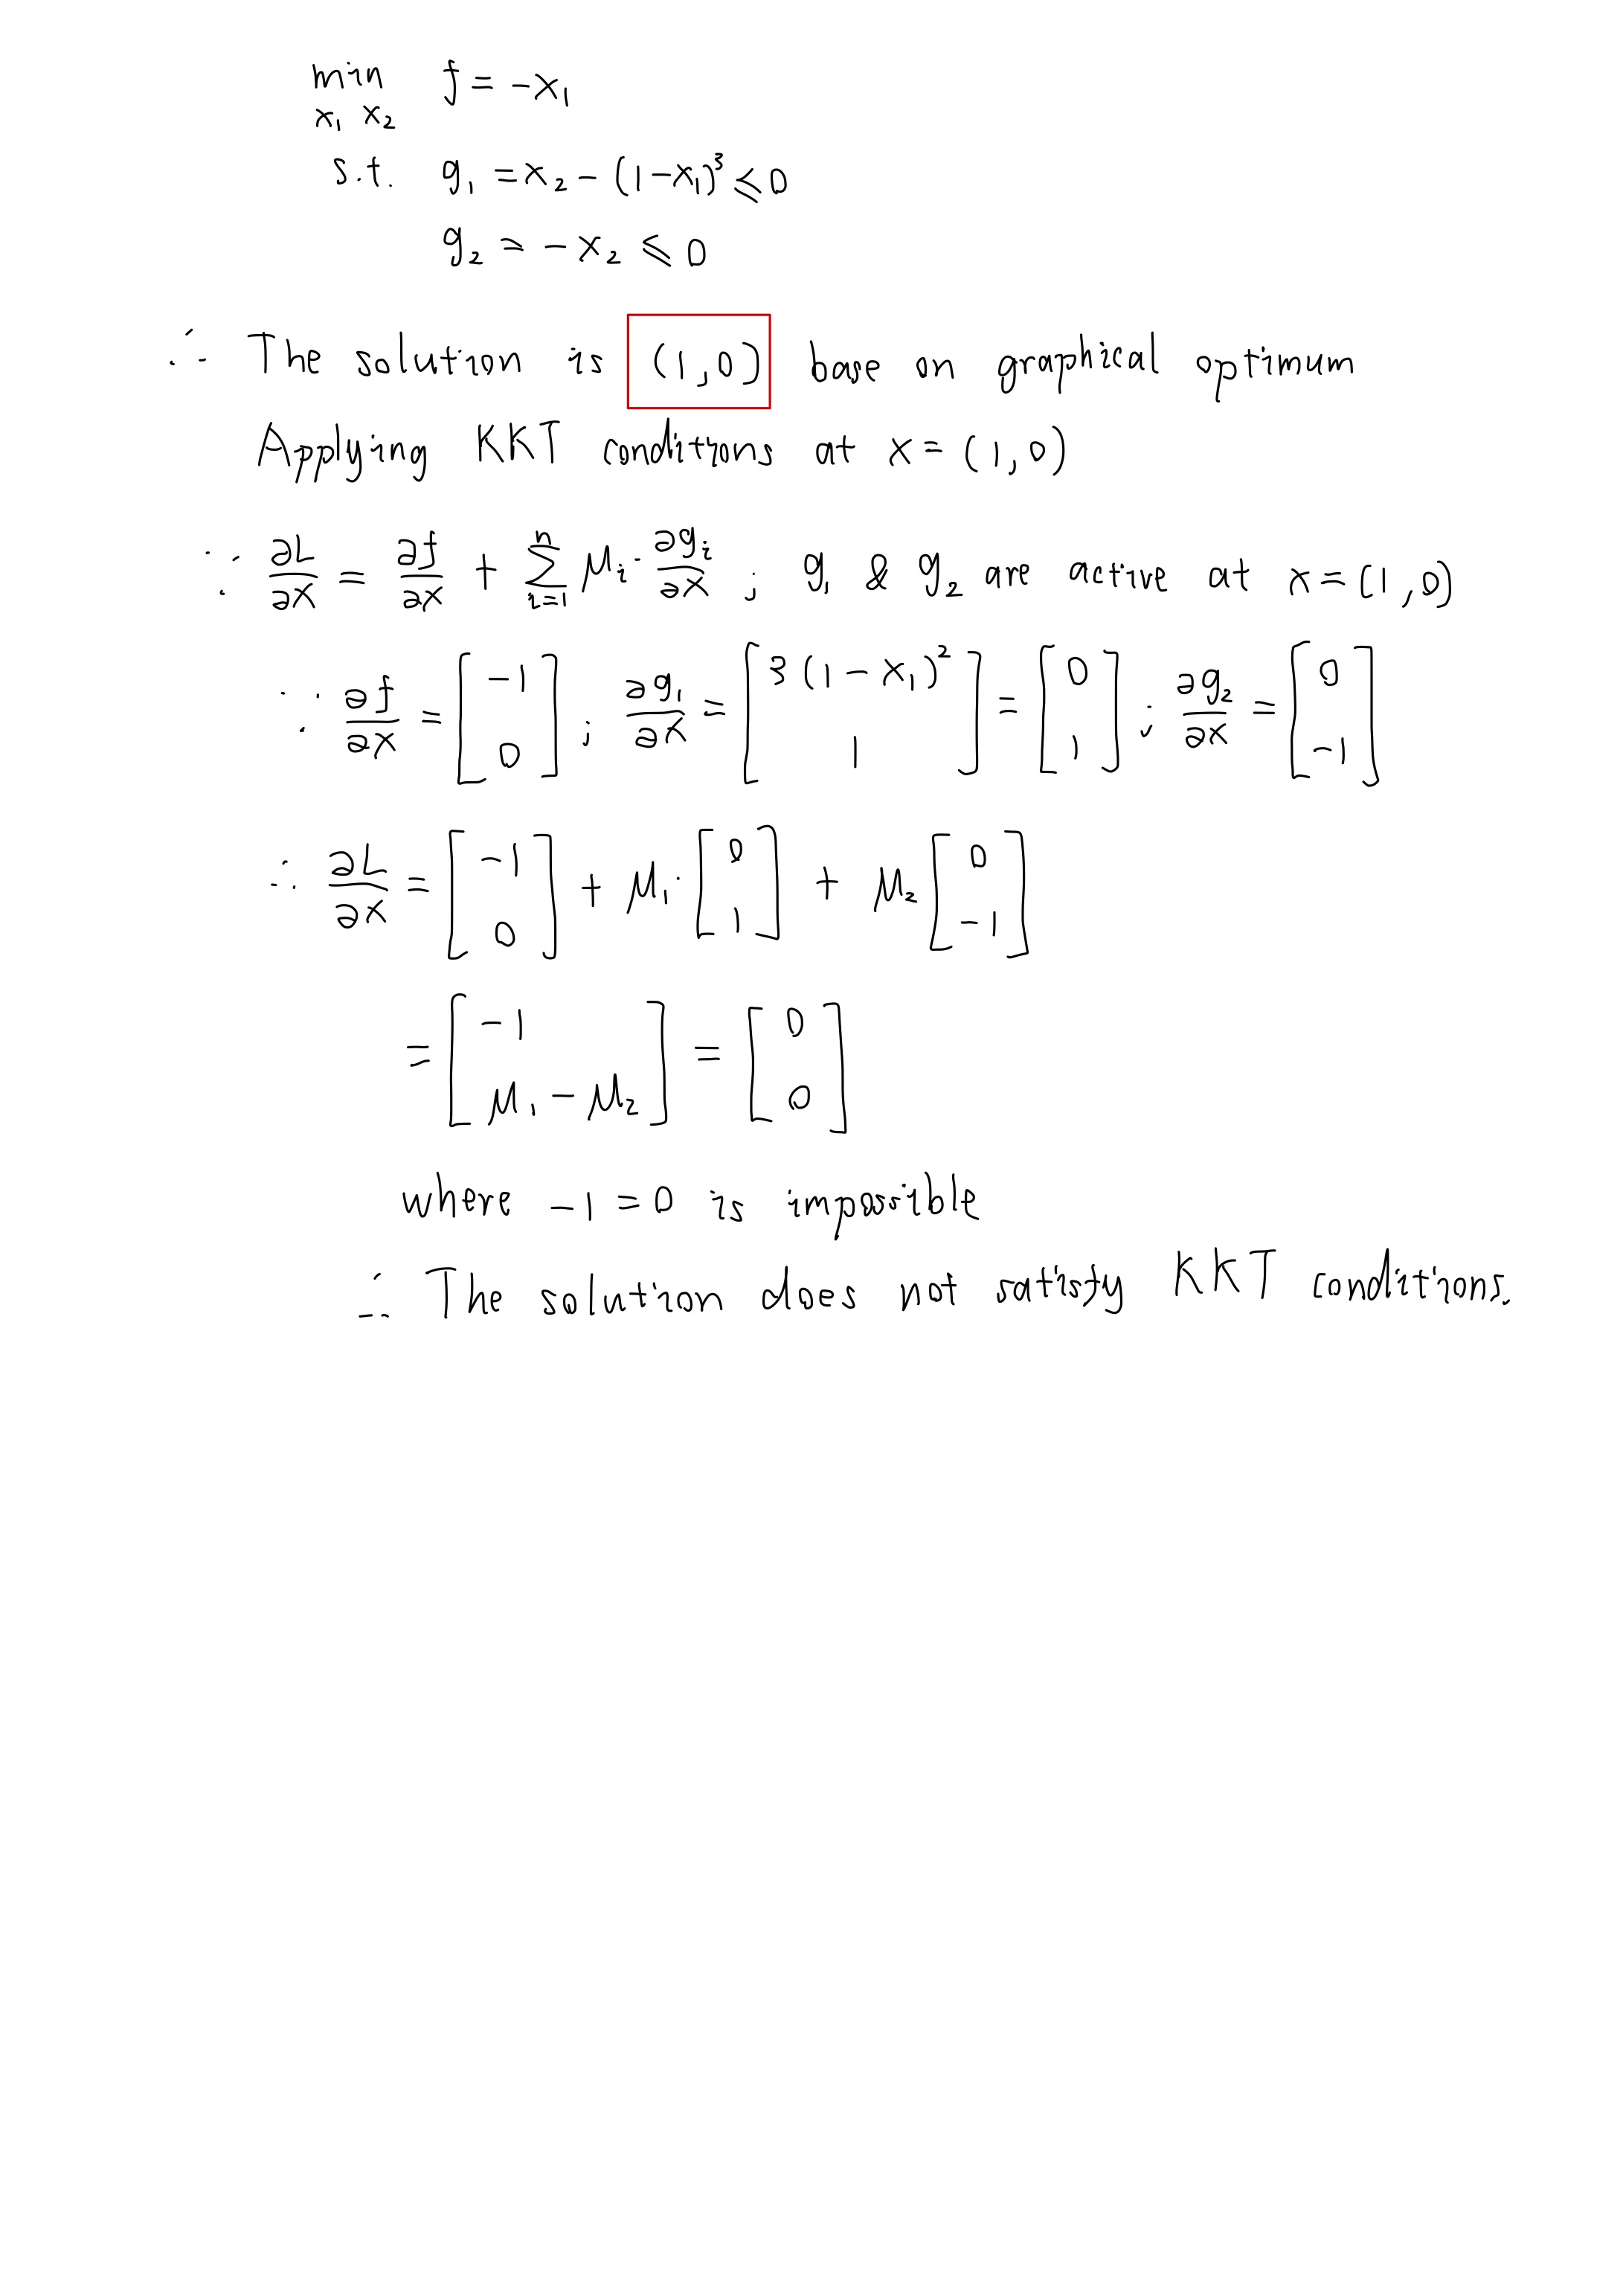 min f = -x₁
x₁ x₂
s.t. g₁ = x₂ - (1-x₁)³ ⩽ 0
g₂ = -x₂ ⩽ 0
∴ The solution is (1,0) base on graphical optimum
Applying KKT conditions at x = (1,0)
∵ ∂L/∂x = ∂f/∂x + ∑ᵢ₌₁ⁿ μᵢ · ∂gᵢ/∂x ; g₁ & g₂ are active at x = (1,0)
∵ ∂f/∂x = [-1; 0] ; ∂g₁/∂x = [3(1-x₁)²; 1] = [0; 1] ; ∂g₂/∂x = [0; -1]
∴ ∂L/∂x = [-1; 0] + μ₁· [0; 1] + μ₂ [0; -1]
= [-1; μ₁ - μ₂] = [0; 0]
where -1 = 0 is impossible
∴ The solution does not satisfy KKT conditions.